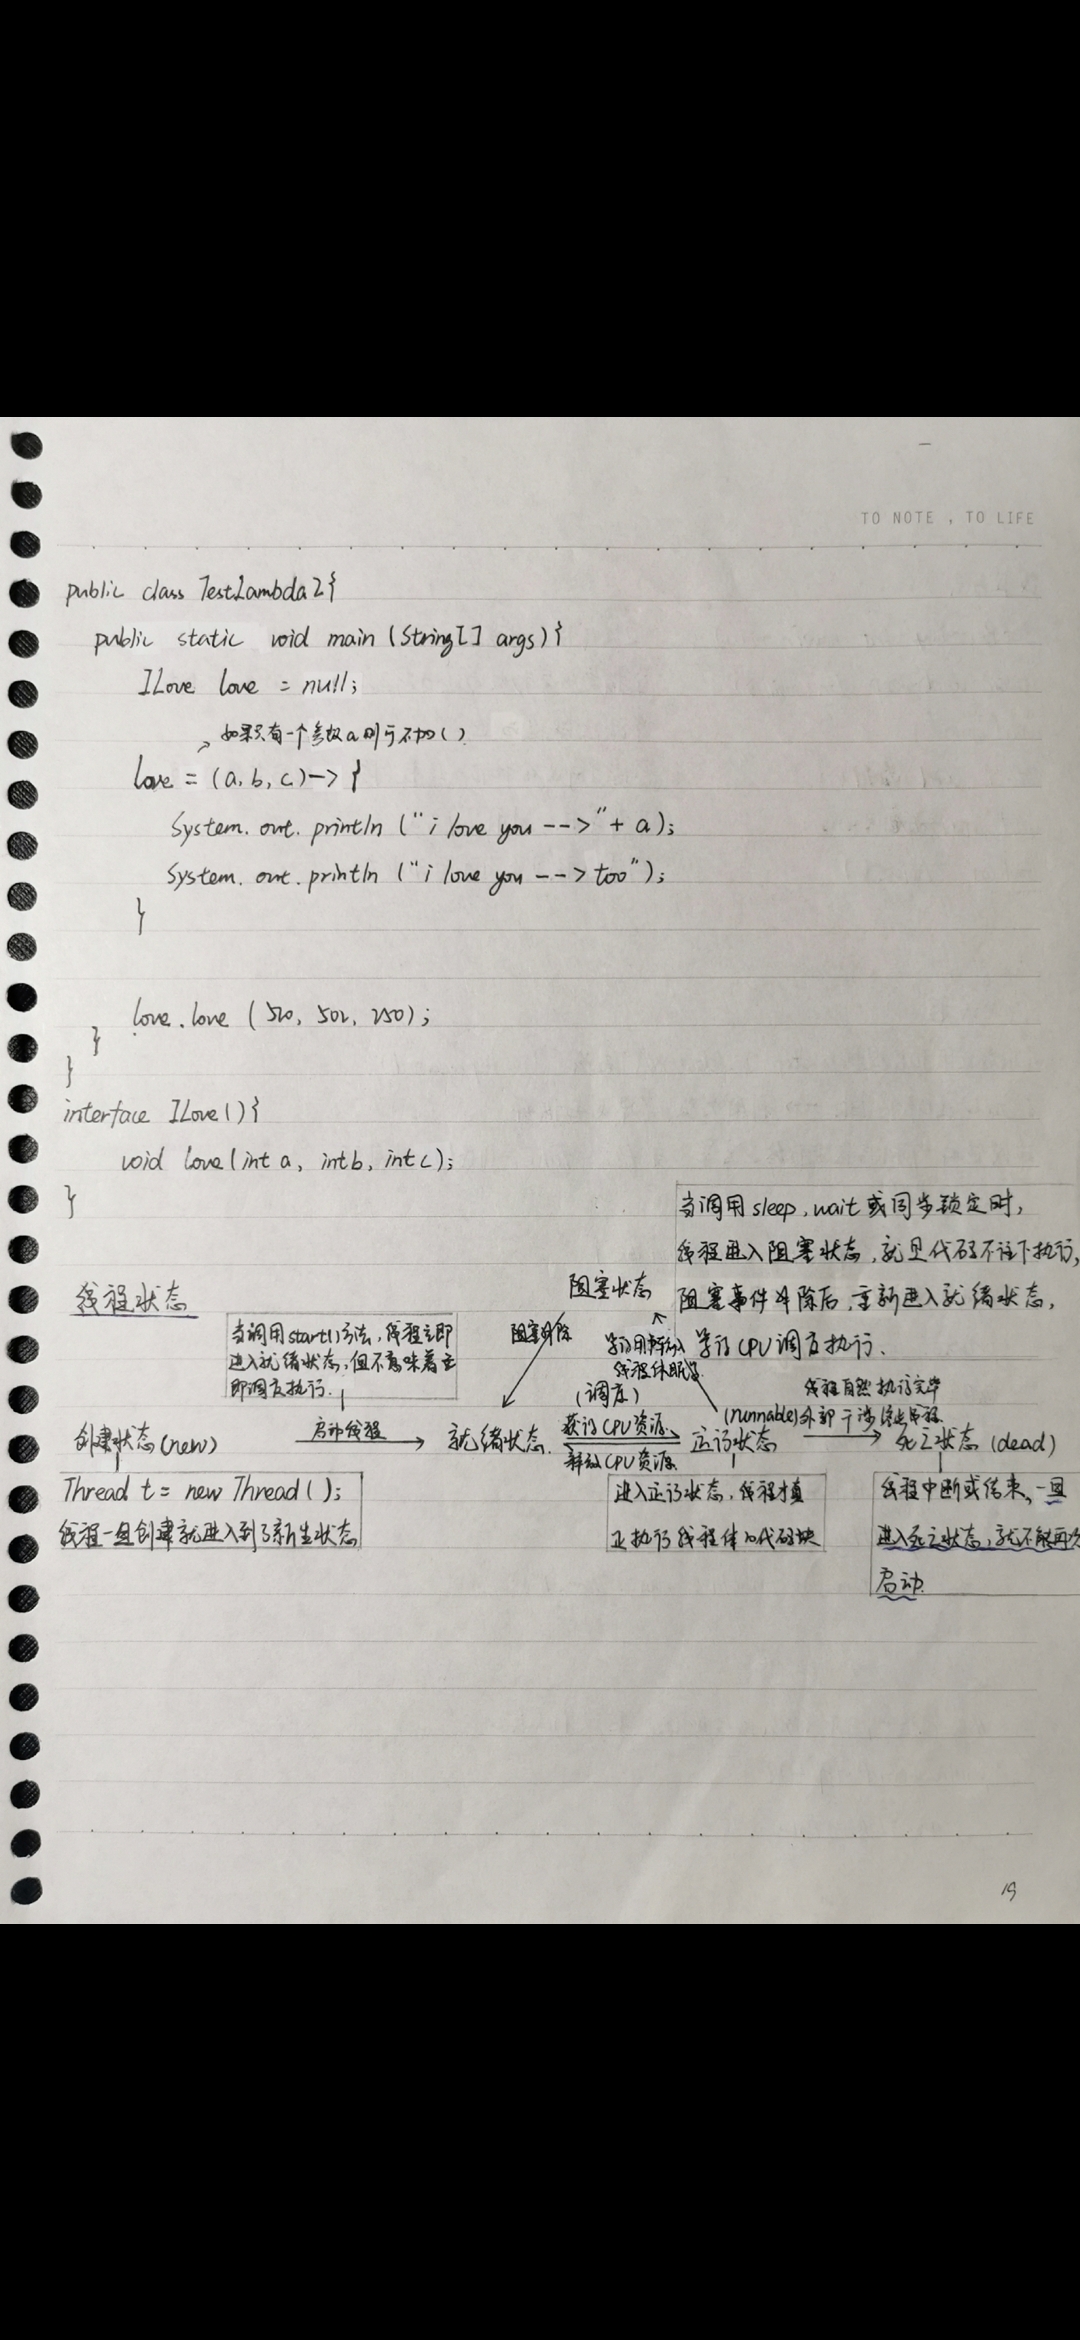 TO NOTE , TO LIFE
public class TestLambda2{
public static void main (String[] args){
ILove love = null;
如果只有一个参数a则可不加()
love = (a, b, c)—> {
System.out.println ("i love you -->"+ a);
System.out.println ("i love you --> too");
}
love.love (520, 502, 250);
}
}
interface ILove(){
void love(int a, int b, int c);
}
当调用sleep,wait或同步锁定时,
线程进入阻塞状态,就是代码不往下执行,
阻塞事件解除后,重新进入就绪状态,
等待CPU调度执行.
线程状态
阻塞状态
当调用start()方法,线程立即
进入就绪状态,但不意味着立
即调度执行.
阻塞解除
等待用户输入
线程休眠等
(调度)
线程自然执行完毕
(runnable)外部干涉终止线程
创建状态(new)
启动线程
就绪状态.
获得CPU资源
释放CPU资源
运行状态
死亡状态 (dead)
Thread t = new Thread();
线程一旦创建就进入到了新生状态
进入运行状态,线程才真
正执行线程体的代码块
线程中断或结束,一旦
进入死亡状态,就不能再次
启动.
19